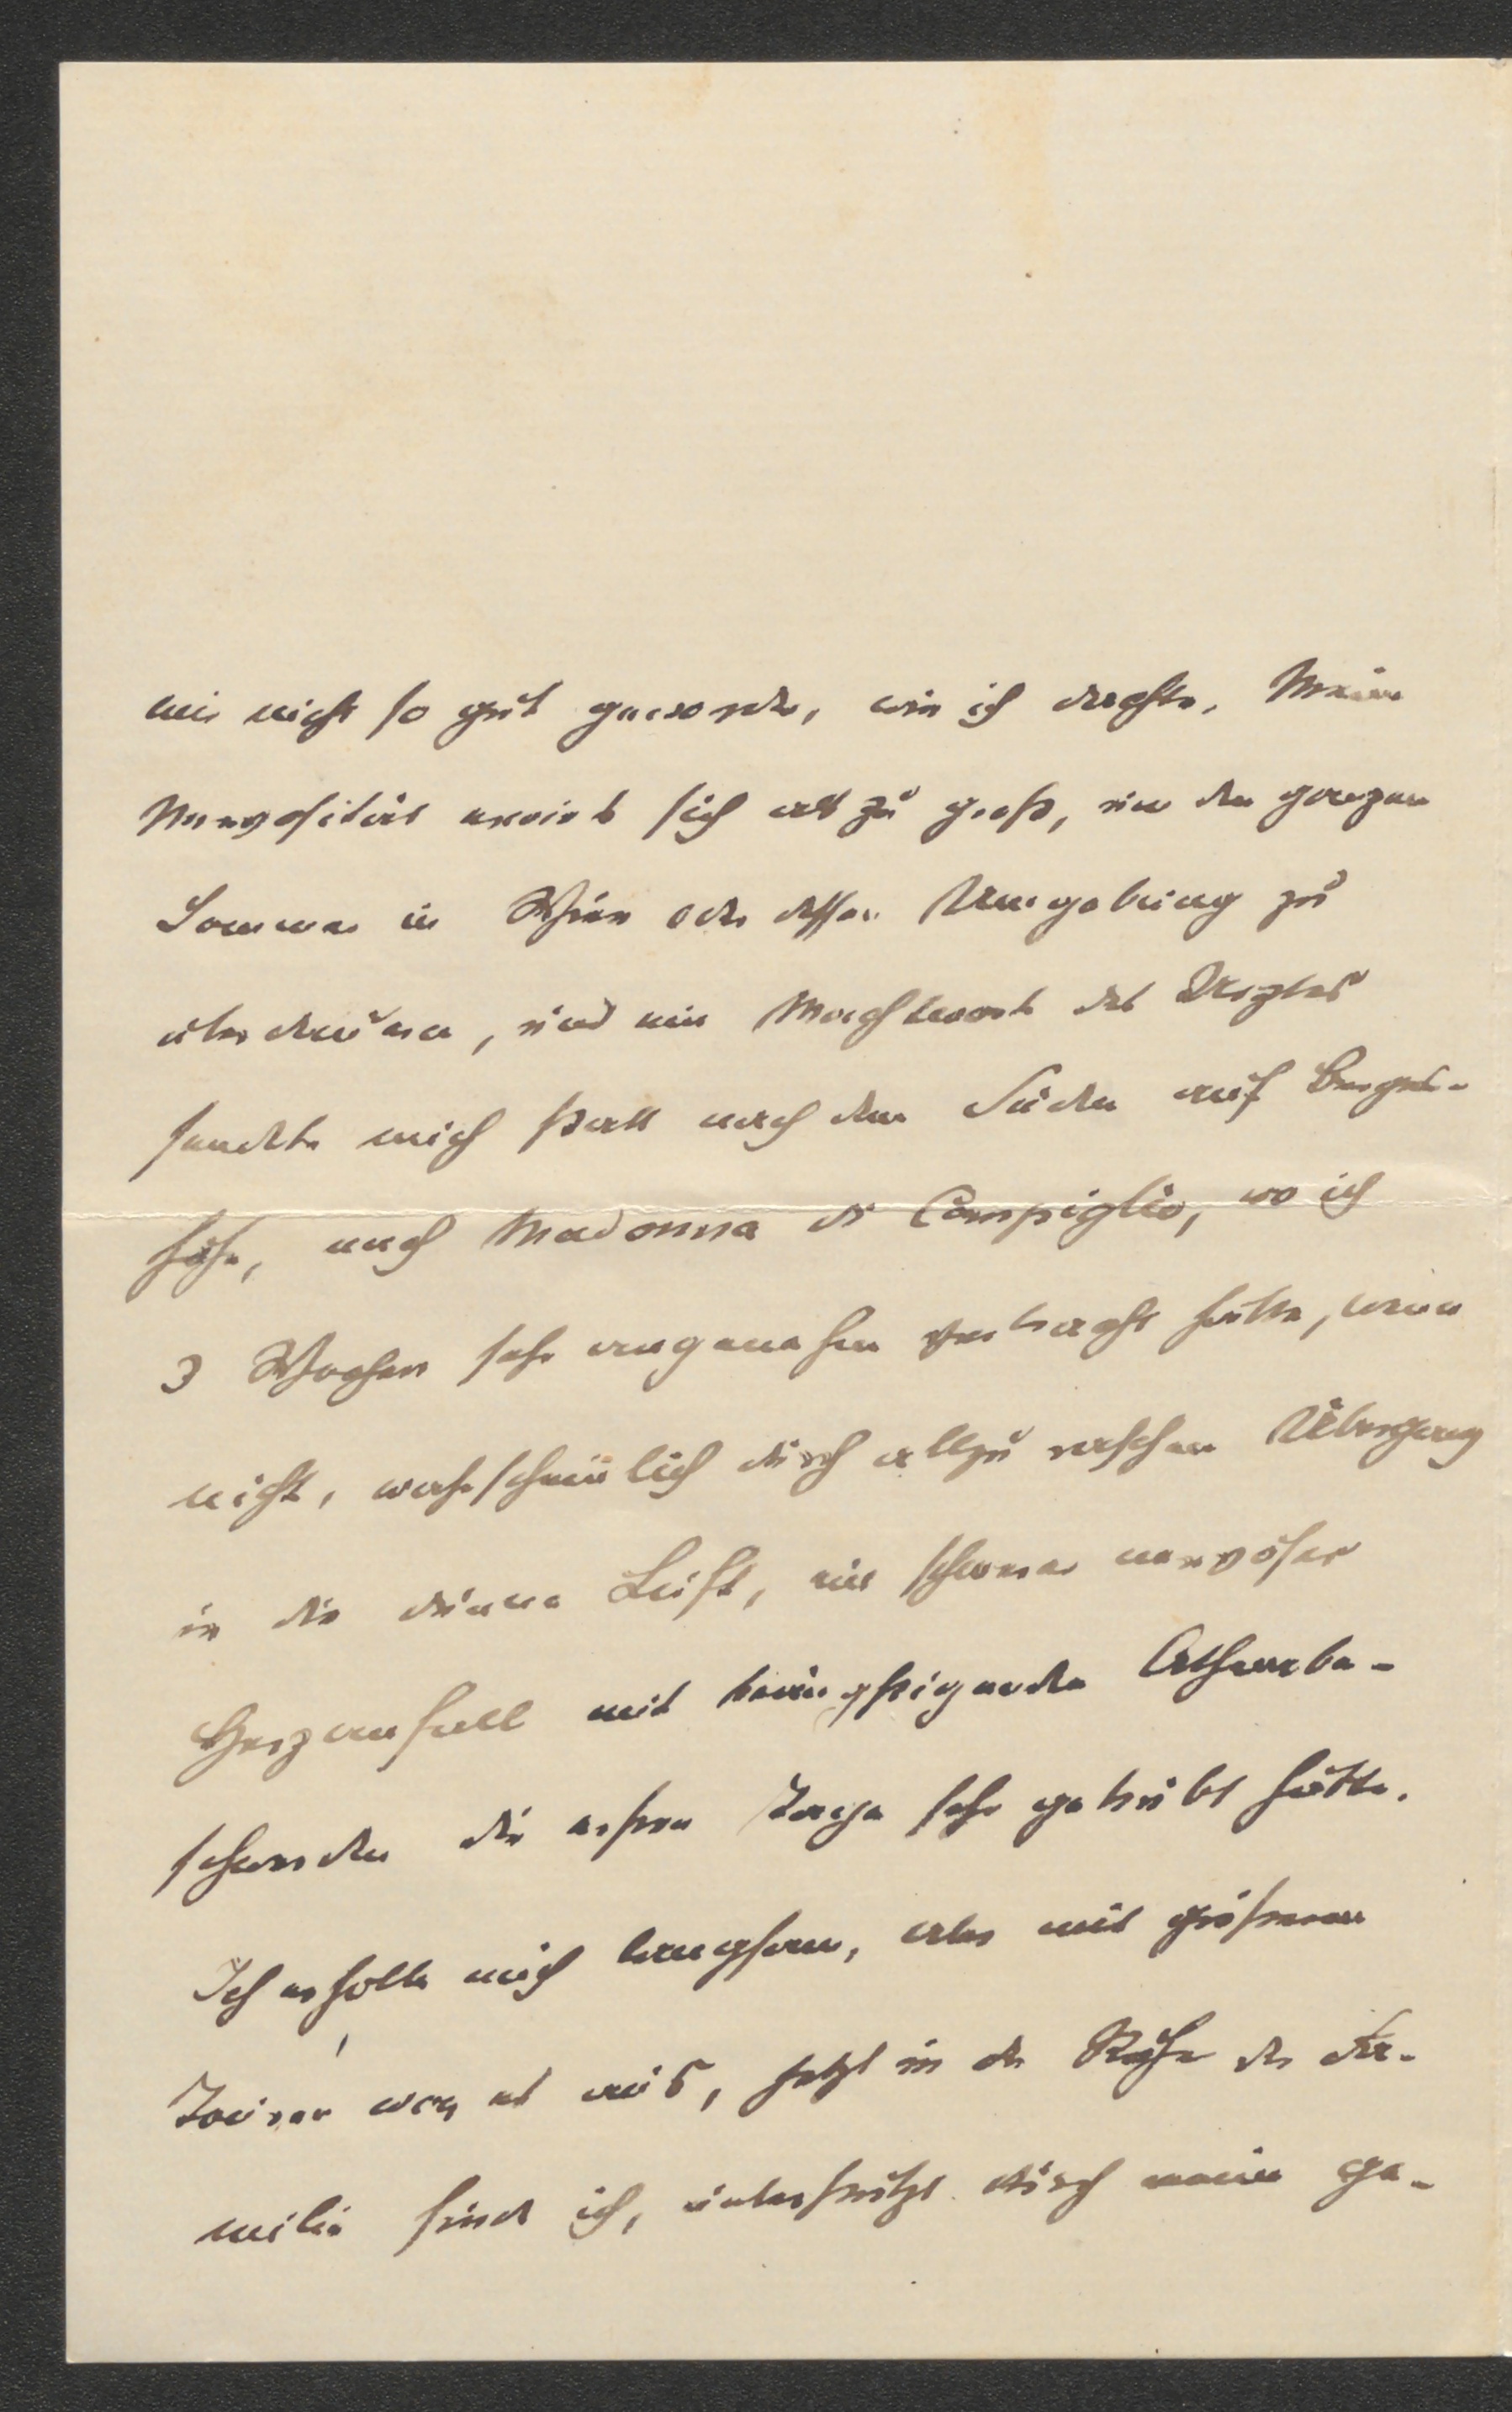 mir nicht so gut geworden, wie ich dachte. Meine
Nervosität erwies sich als zu groß, um den ganzen
Sommer in Wien oder dessen Umgebung zu
überdauern, und ein Machtwort des Arztes
sandte mich statt nach dem Süden auf Berges-
höhe, nach Madonna di Campiglio, wo ich
3 Wochen sehr angenehm verbracht hätte, wenn
nicht, wahrscheinlich durch allzu raschen Übergang
in die dünne Luft, ein schwerer nervöser
Herzanfall mit beängstigenden Athembe-
schwerden die ersten Tage sehr getrübt hätte.
Ich erholte mich langsam, aber mit größerem
war es aus, jetzt in der Nähe der Fa-
milie finde ich, unterstützt durch meine Ge-